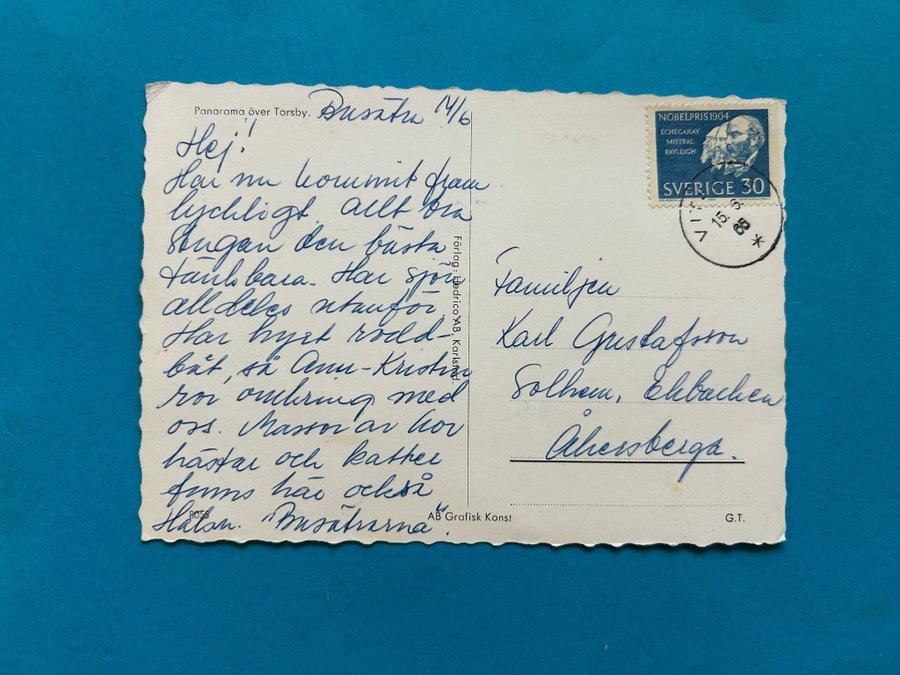 Panorama över Torsby.
Busätra 14/6
Hej!
Har nu kommit fram
lyckligt. Allt bra
Stugan den bästa
tänkbara. Har sjön
alldeles utanför.
Har hyrt rodd-
båt, så Ann-Kristin
ror omkring med
oss. Massor av kor
hästar och katter
finns här också
Hälsn. "Busätrarna".
8058
Förlag: Hedrico AB, Karlstad
AB Grafisk Konst
G.T.
NOBELPRIS 1904
ECHEGARAY
MISTRAL
RAYLEIGH
SVERIGE 30
15 6
65
Familjen
Karl Gustafsson
Solhem, Ekbacken
Åkersberga.